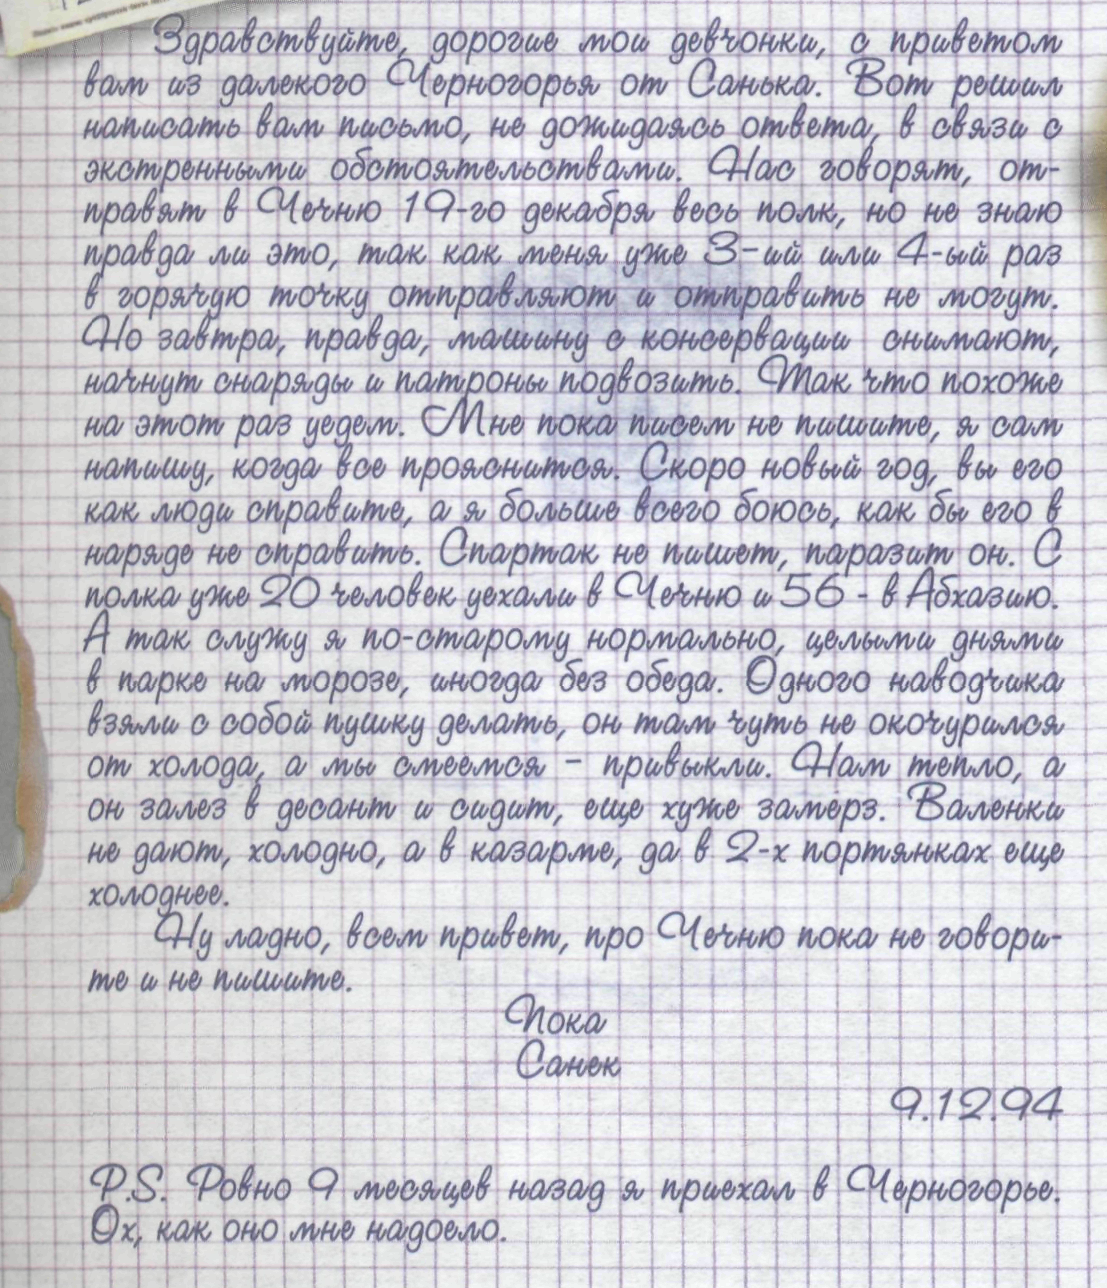 Здравствуйте, дорогие мои девчонки, с приветом
вам из далекого Черногорья от Санька. Вот решил
написать вам письмо, не дожидаясь ответа, в связи с
экстренными обстоятельствами. Нас говорят, от-
правят в Чечню 19-го декабря весь полк, но не знаю
правда ли это, так как меня уже 3-ий или 4-ый раз
в горячую точку отправляют и отправить не могут.
Но завтра, правда, машину с консервации снимают,
начнут снаряды и патроны подвозить. Так что похоже
на этот раз уедем. Мне пока писем не пишите, я сам
напишу, когда все прояснится. Скоро новый год, вы его
как люди справите, а я больше всего боюсь, как бы его в
наряде не справить. Спартак не пишет, паразит он. С
полка уже 20 человек уехали в Чечню и 56 - в Абхазию.
А так служу я по-старому нормально, целыми днями
в парке на морозе, иногда без обеда. Одного наводчика
взяли с собой пушку делать, он там чуть не окочурился
от холода, а мы смеемся - привыкли. Нам тепло, а
он залез в десант и сидит, еще хуже замерз. Валенки
не дают, холодно, а в казарме, да в 2-х портянках еще
холоднее.
Ну ладно, всем привет, про Чечню пока не говори-
те и не пишите.
Пока
Санек
9.12.94
P.S. Ровно 9 месяцев назад я приехал в Черногорье.
Ох, как оно мне надоело.